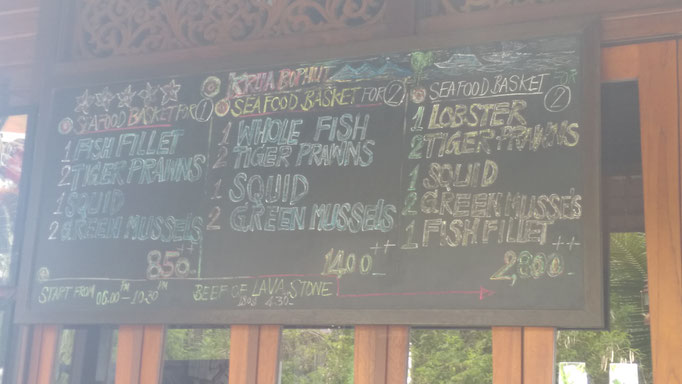 SEAFOOD BASKET FOR 1
1 FISH FILLET
2 TIGER PRAWNS
1 SQUID
2 GREEN MUSSELS
850.-
KRUA BOPHUT
SEAFOOD BASKET FOR 2
1 WHOLE FISH
2 TIGER PRAWNS
1 SQUID
2 GREEN MUSSELS
++
1400.-
SEAFOOD BASKET FOR 2
1 LOBSTER
2 TIGER PRAWNS
1 SQUID
2 GREEN MUSSELS
1 FISH FILLET ++
2,800.-
START FROM 06.00 PM - 10.30 PM
BEEF OF LAVA STONE